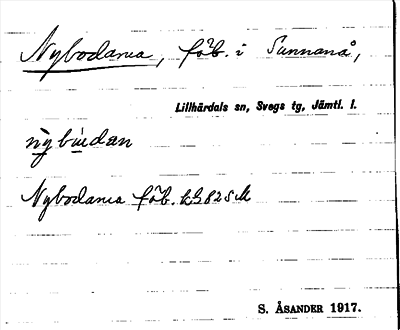 Nybodarna, fäb. i Sunnanå,
Lillhärdals sn, Svegs tg, Jämtl. l.
Nybodarna fäb.
S. ÅSANDER 1917.